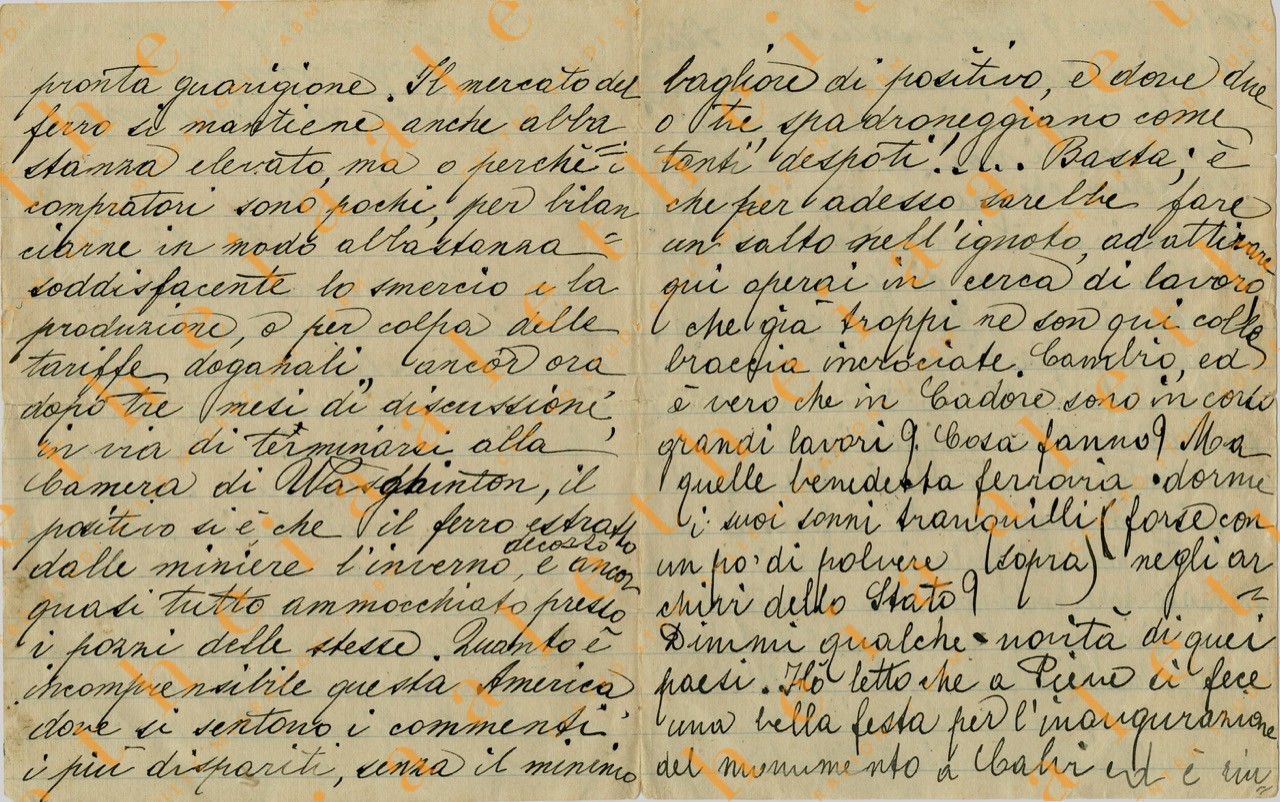 pronta guarigione. Il mercato del
ferro si mantiene anche abba
stanza elevato, ma o perchè i
compratori sono pochi, per bilan
ciarne in modo abbastanza
soddisfacente lo smercio e la
produzione, o per colpa delle
tariffe doganali, ancor ora
dopo tre mesi di discussione,
in via di terminarsi alla
Camera di Wasghinton, il
positivo si è che il ferro estratto
decorso
dalle miniere l'inverno, è ancor
quasi tutto ammocchiato presso
i pozzi delle stesse. Quanto è
incomprensibile questa America
dove si sentono i commenti
i più dispariti, senza il minimo
bagliore di positivo, e dove due
o tre spadroneggiano come
tanti despoti!.... Basta; è
che per adesso sarebbe fare
un salto nell'ignoto, ad attirare
qui operai in cerca di lavoro
che già troppi ne son qui colle
braccia incrociate. Cambio, ed
è vero che in Cadore sono in corso
grandi lavori? Cosa fanno? Ma
quelle benedetta ferrovia dorme
i suoi sonni tranquilli (forse con
un po' di polvere (sopra) negli ar
chivi dello Stato?
Dimmi qualche novità di quei
paesi. Hò letto che a Pieve si fece
una bella festa per l'inaugurazione
del monumento a Calvi ed è